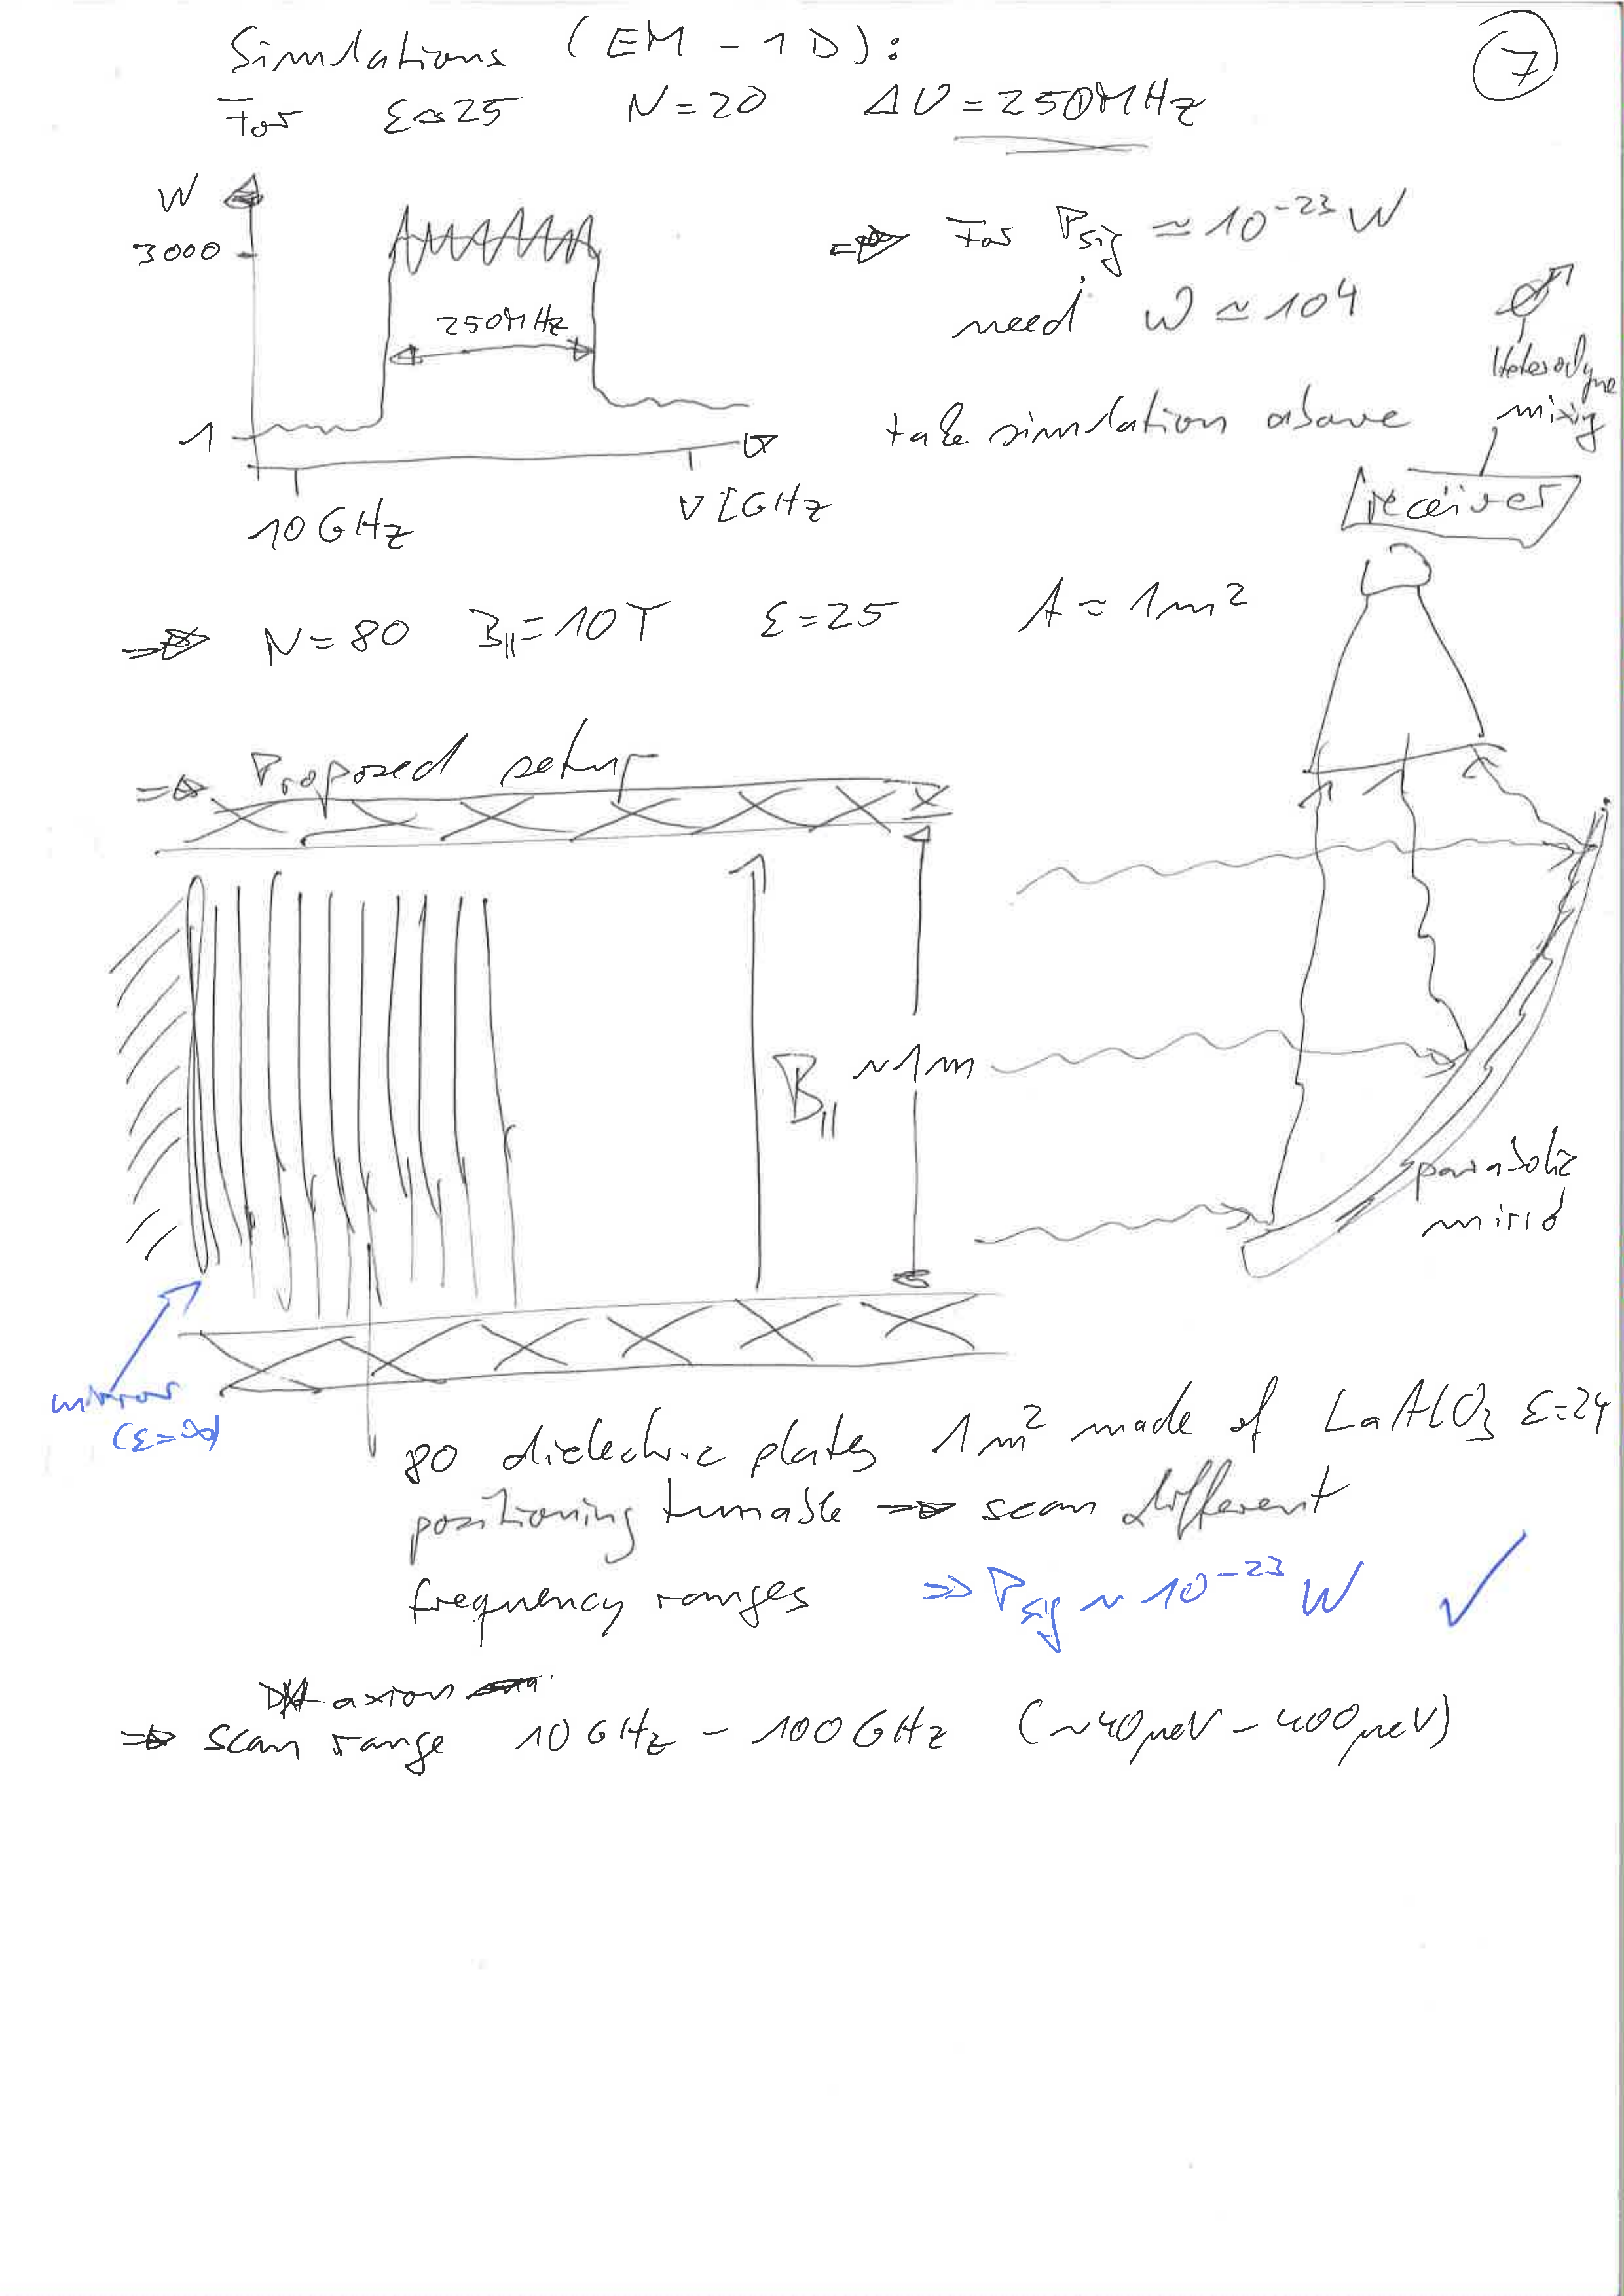 Simulations (EM - 1D):
7
For ε≃25 N=20 Δν=250MHz
W
3000
250MHz
1
10 GHz
ν [GHz
⇒ For Psig ≃ 10^-23 W
need W ≃ 104
take simulation above
Heterodyne
mixing
receiver
⇒ N=80 B||=10T ε=25 A≃1m²
⇒ Proposed setup
B||
~1m
parabolic
mirro
mirror
(ε=∞)
80 dielectric plates 1m² made of LaAlO3 ε=24
positioning tunable ⇒ scan different
frequency ranges ⇒ Psig ~ 10^-23 W ✓
DM axion
⇒ scan range 10 GHz - 100 GHz (~40μeV - 400μeV)